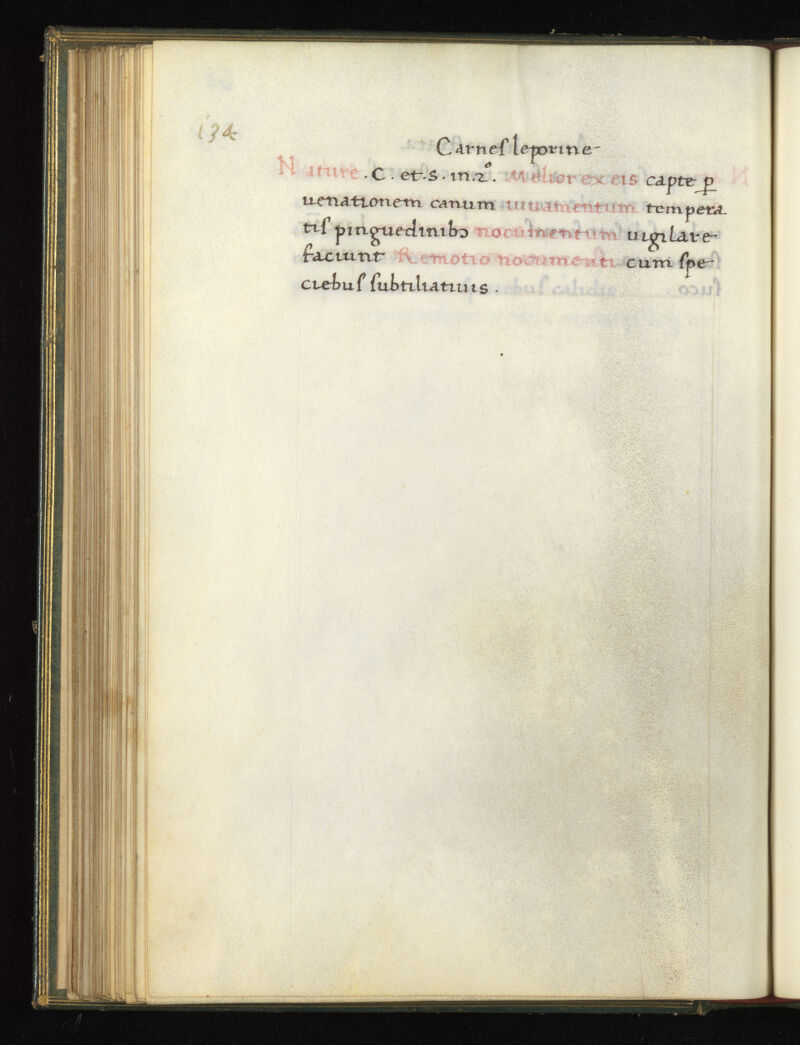 134
Carnes leporine
Nature .C. et .S. in .2°. Melior ex eis capte p
uenationem canum iuuamentum tempera
tis pinguedinibꝫ nocumentum uigilare
faciunt Remotio nocumenti cum spe-
ciebus subtiliatiuis .